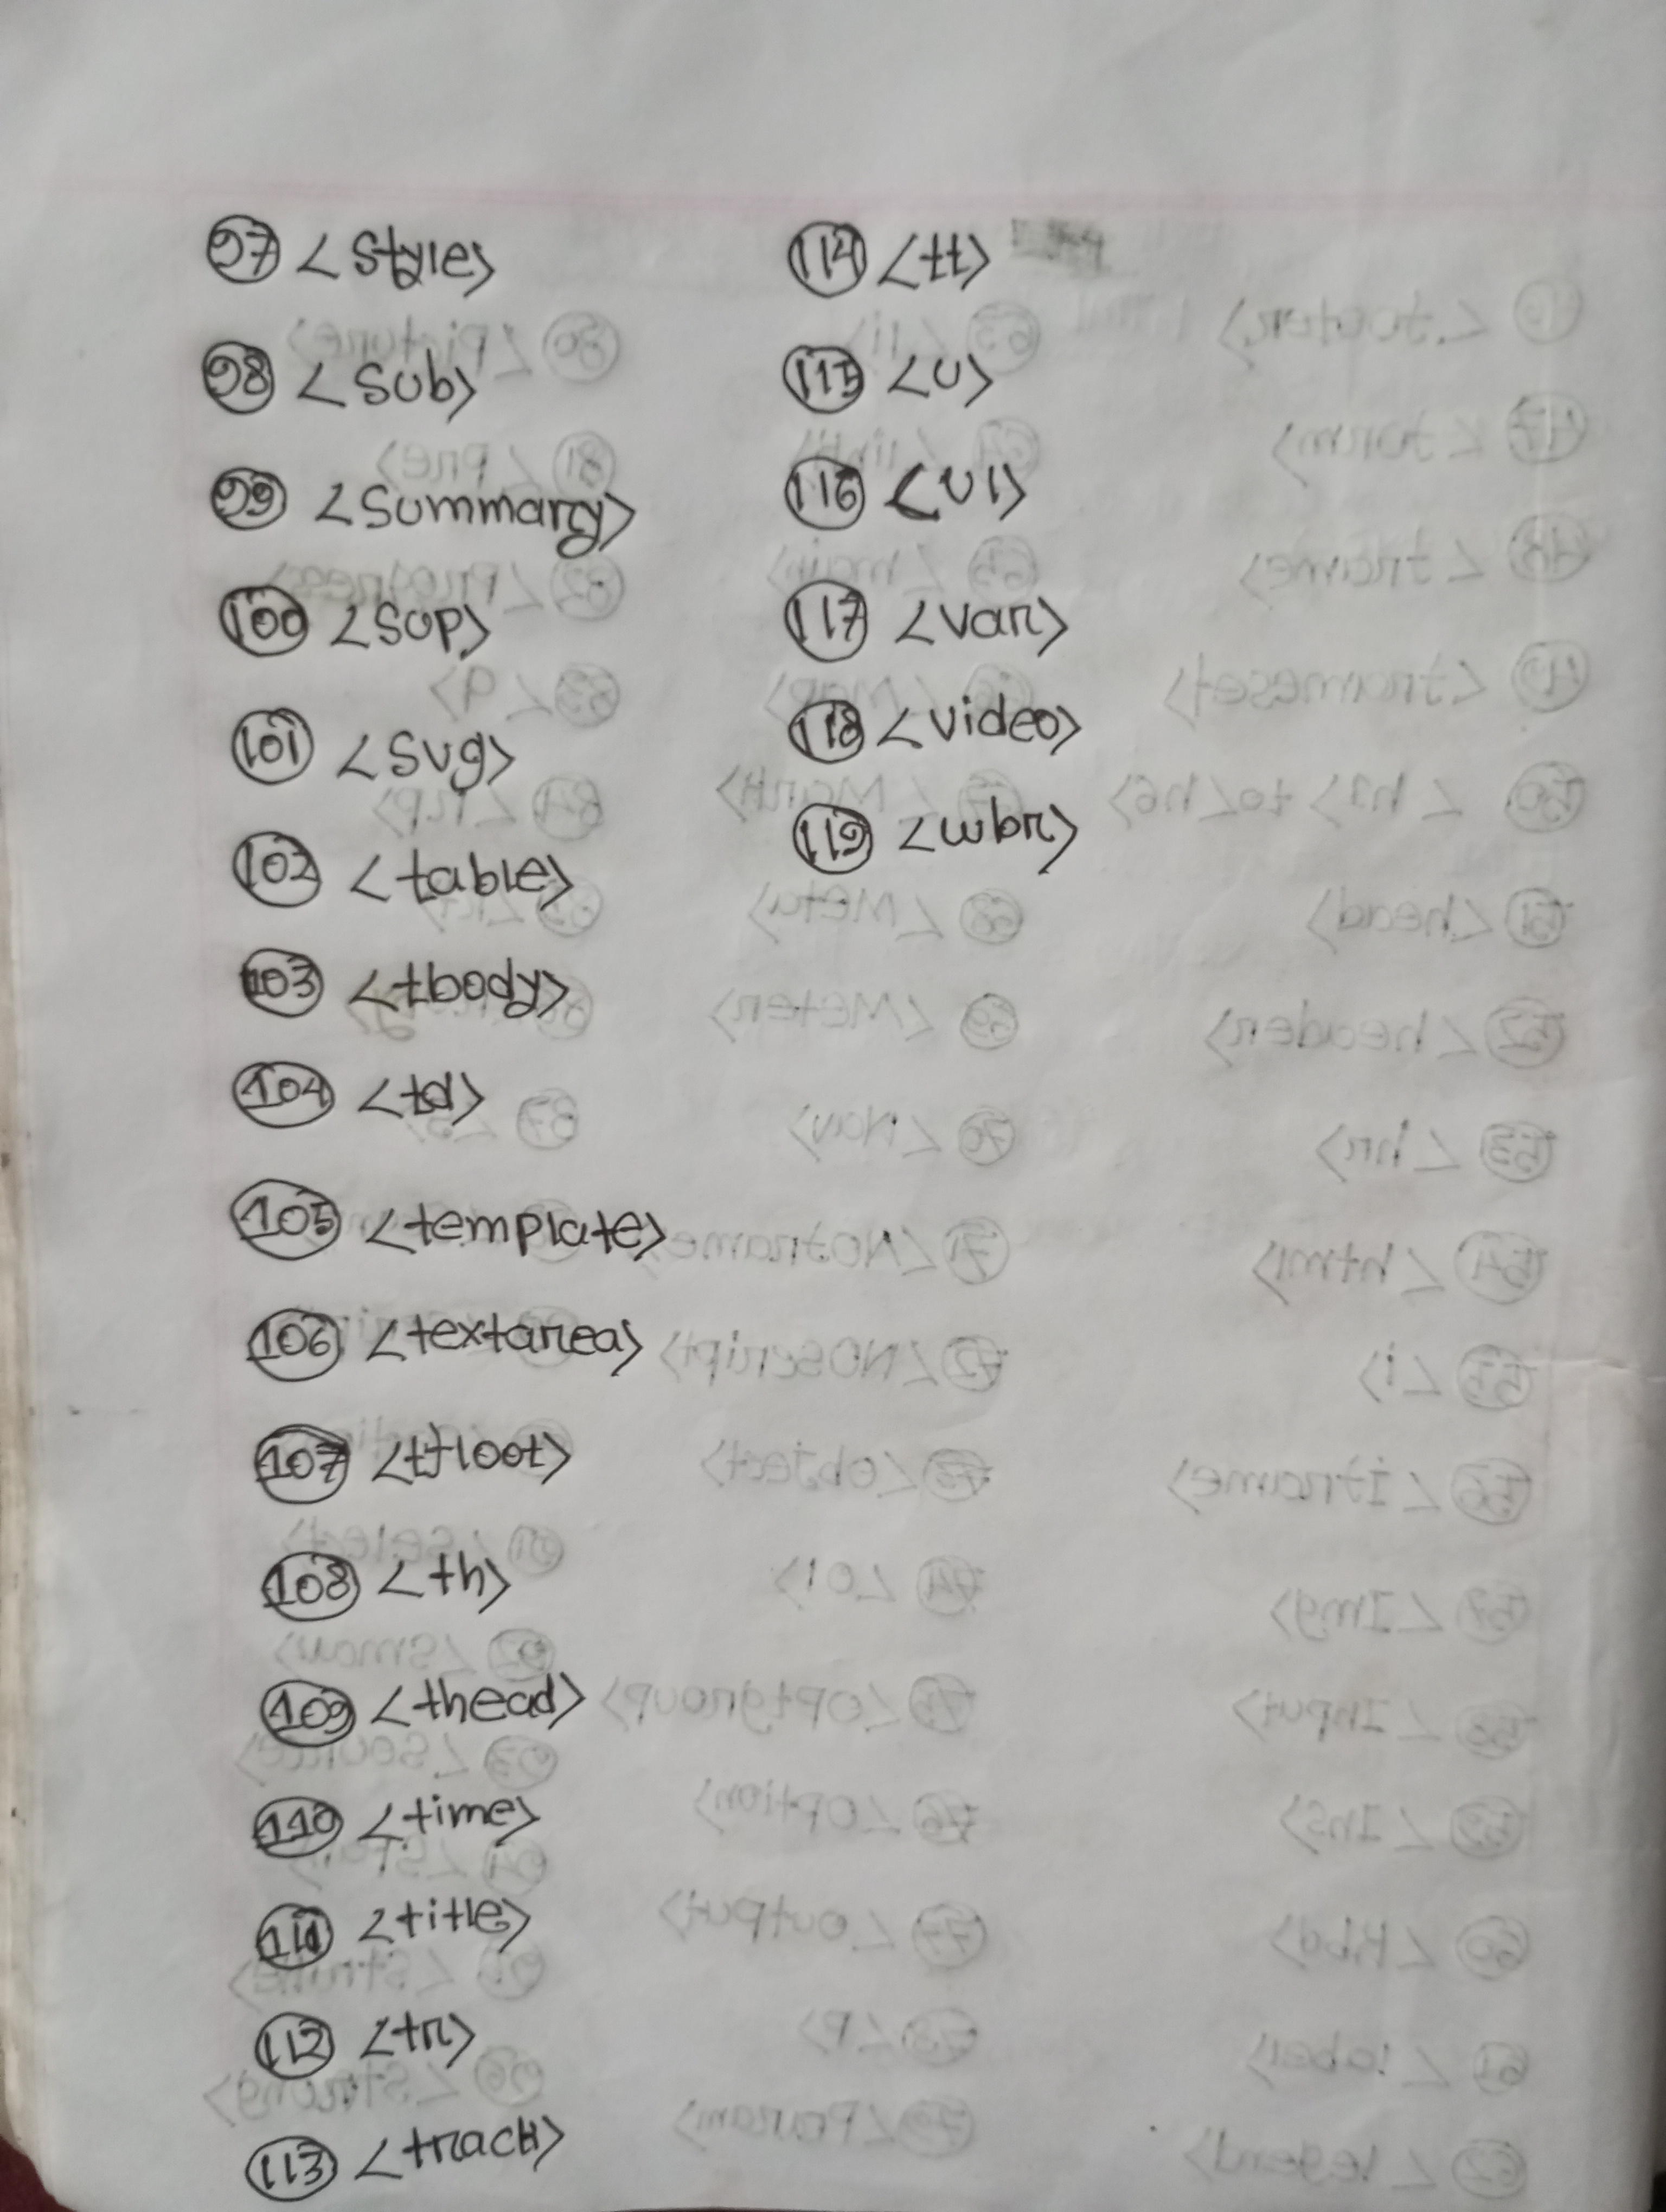 97 <style>
98 <sub>
99 <summary>
100 <sup>
101 <svg>
102 <table>
103 <tbody>
104 <td>
105 <template>
106 <textarea>
107 <tfloot>
108 <th>
109 <thead>
110 <time>
111 <title>
112 <tr>
113 <track>
114 <tt>
115 <u>
116 <ul>
117 <var>
118 <video>
119 <wbr>